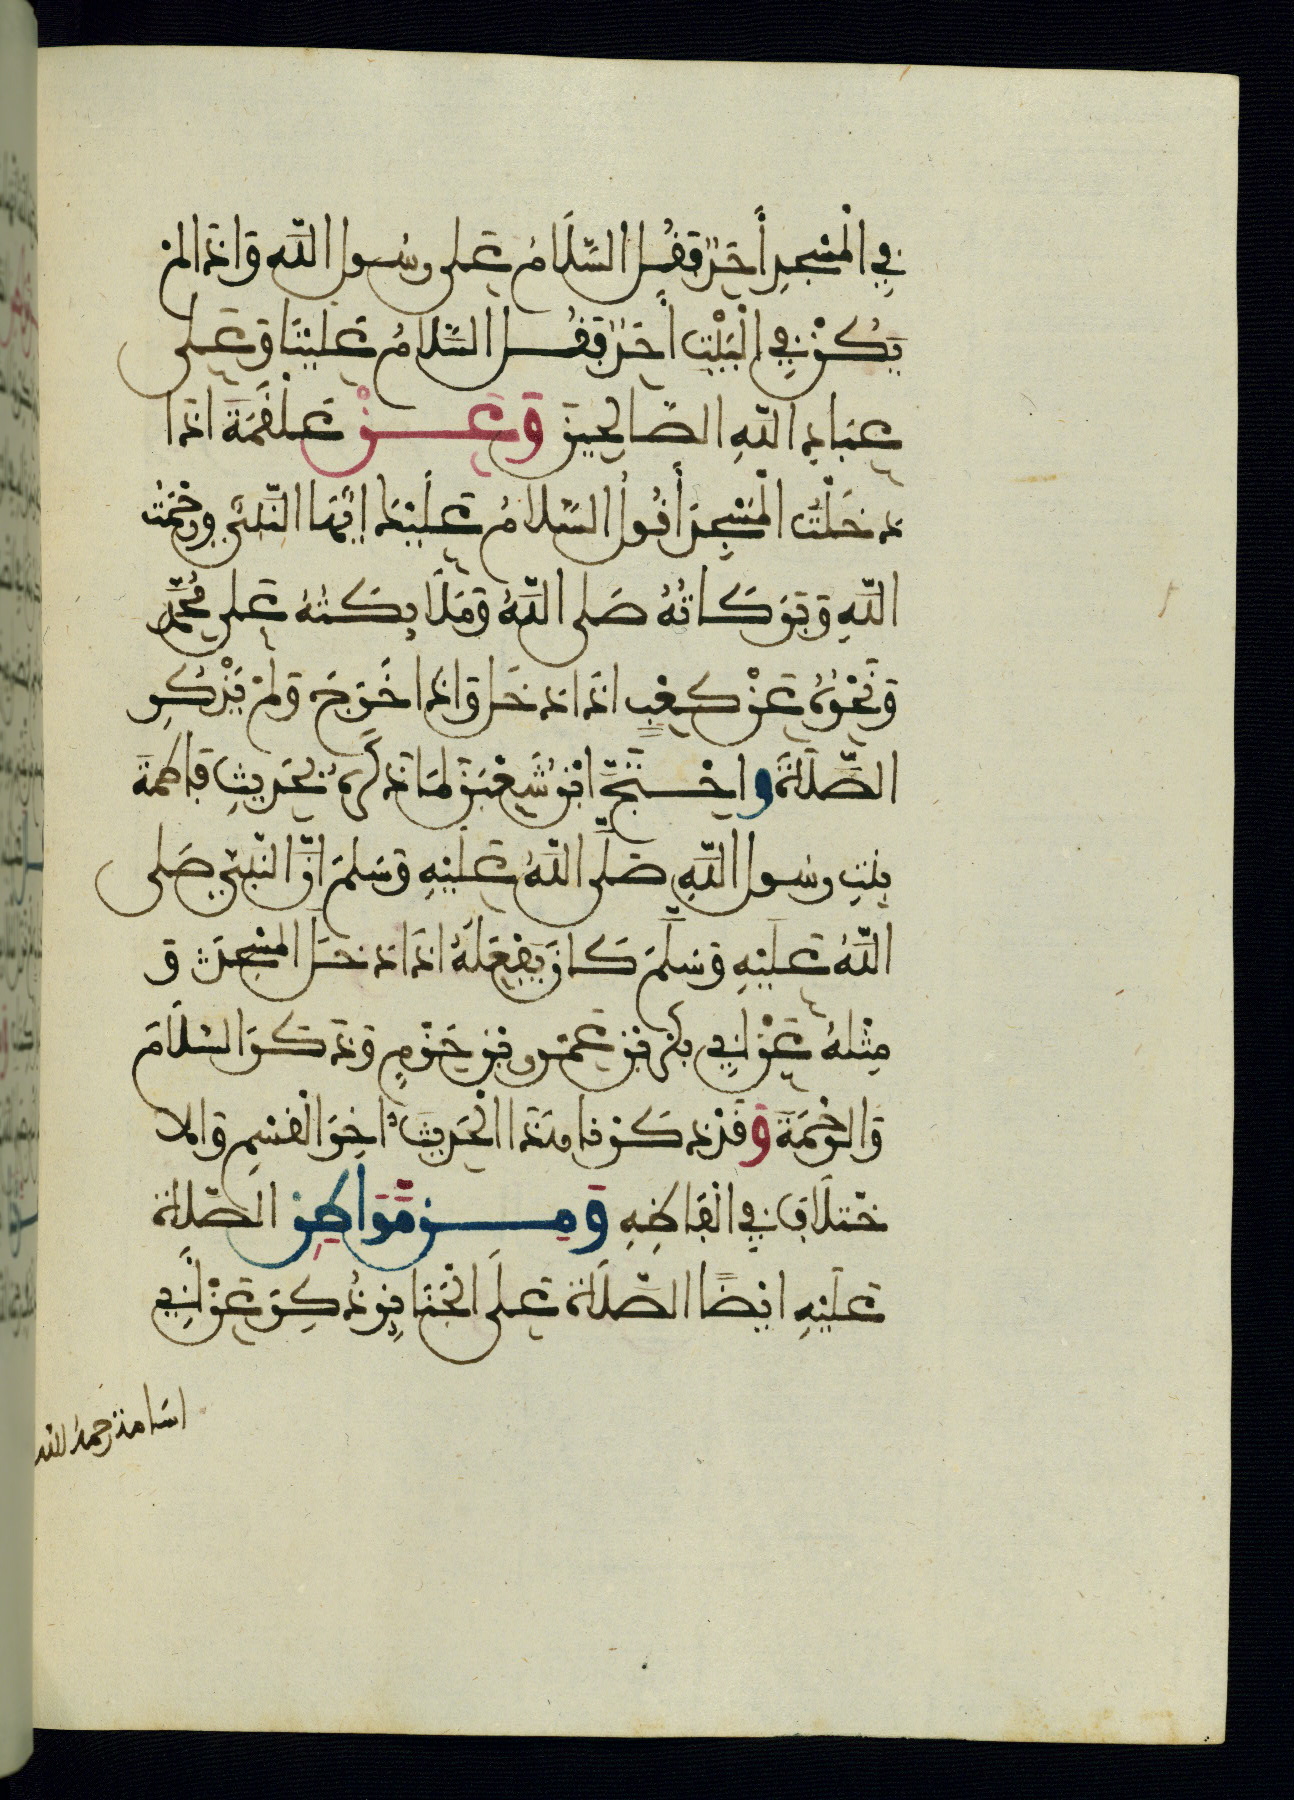 في المسجد أحد فقل السلام على رسول الله وإذا لم
يكن في البيت أحد فقل السلام علينا وعلى
عباد الله الصالحين وعن علقمة اذا
دخلت المسجد أقول السلام عليك ايها النبي ورحمت
الله وبركاته صلى الله وملايكته على محمد
ونحوه عن كعب اذا دخل واذا خرج ولم يذكر
الصلاة واحتج ابن شعبن لما ذكره بحديث فاطمة
بنت رسول الله صلى الله عليه وسلم ان النبي صلى
الله عليه وسلم كان يفعله اذا دخل المسجد و
مثله عن ابي بكر بن عمرو بن حزم وذكر السلام
والرحمة وقد ذكرنا هذا الحديث اخر القسم والا
ختلاف في الفاظه ومن مواطن الصلاة
عليه ايضا الصلاة على الجنايز وذكر عن ابي
اسامة رحمه الله